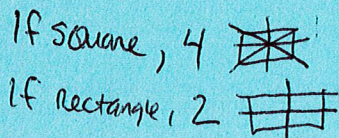 If square, 4
If Rectangle, 2